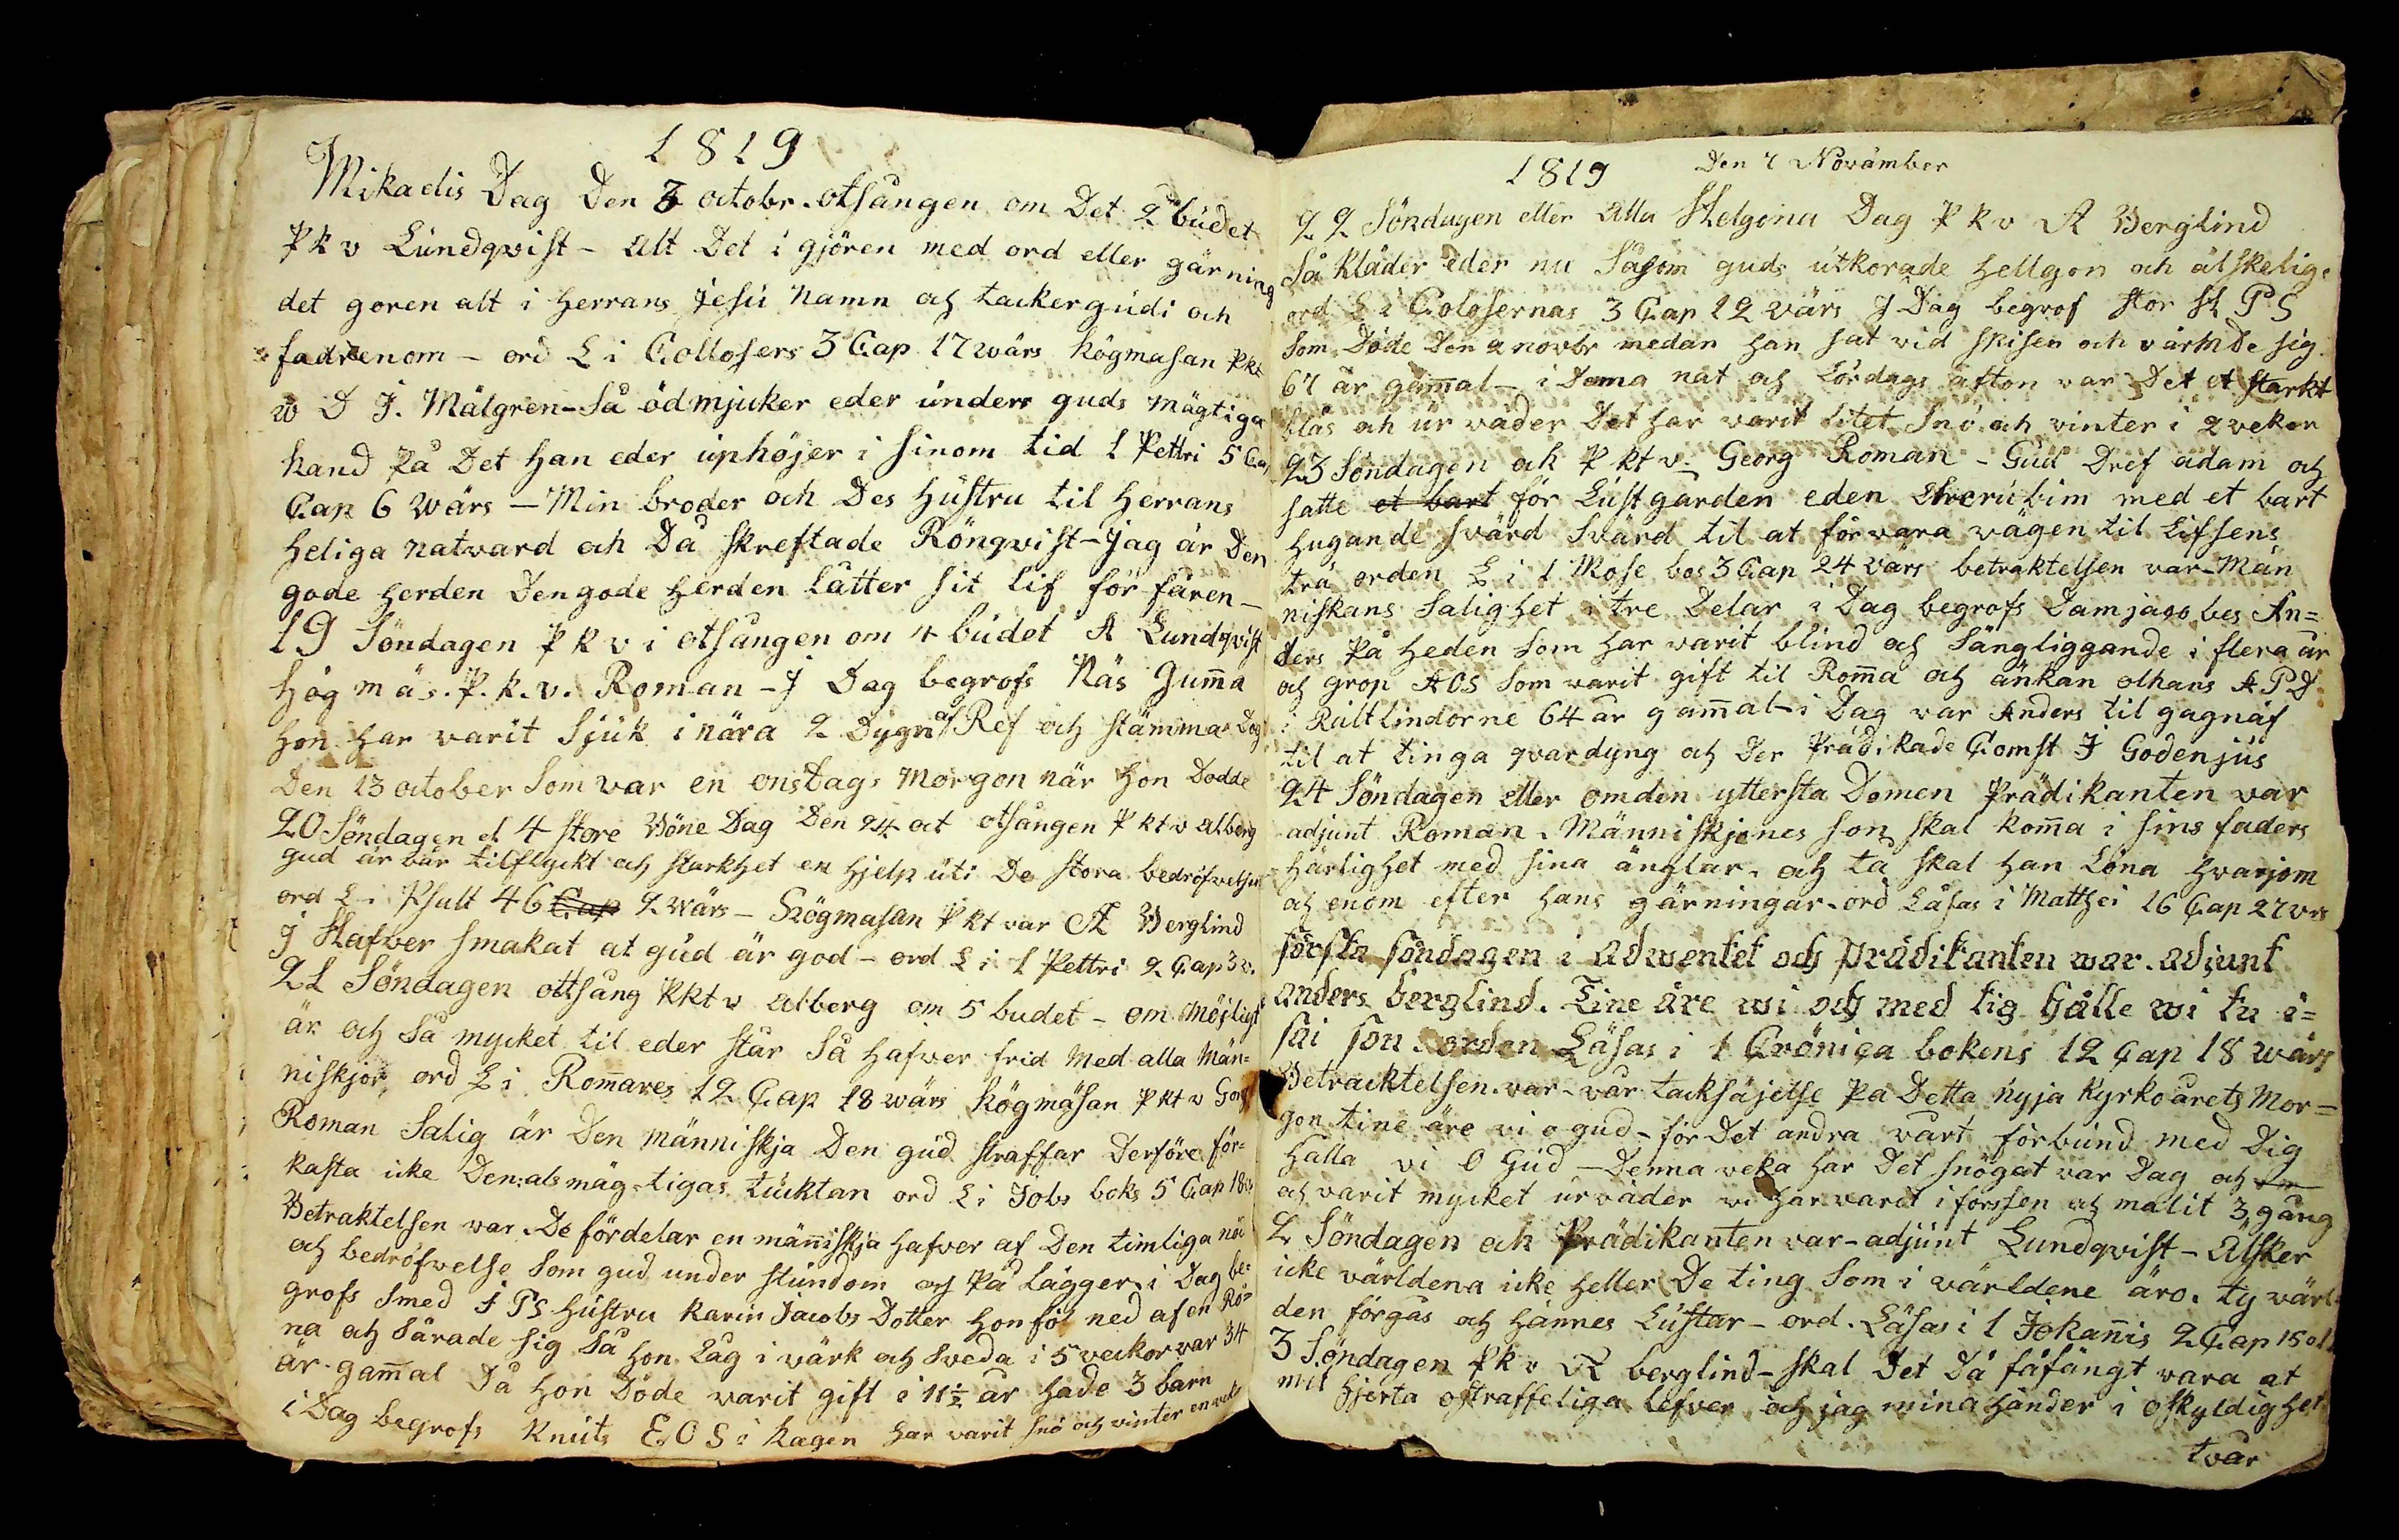 1819
Mikaelis Dag Den 3 octobr. otsången om Det 2 budet
P k v Lundqvist - alt Det i gjören med ord eller gärning
det goren alt i herrans jesu namn och tacker gudi och
fadrenom - ord L i Collosers 3 Cap 17 wärs högmäsan Pkt
w D J. Målgren - Så ödmjuker eder unders guds mägtiga
hand på Det han eder uphöjer i sinom tid 1 Pettri 5 Ca
Cap 6 wärs - Min broder och Des hustru til herrans
heliga natvard och Då skreftade Rönqvist - Jag är Den
gode herden Den gode herden låtter sit lif för fåren -
19 Söndagen P k v i otsången om 4 budet A Lundqvist
hög mäs. P. k. v. Roman - J Dag begrofs Näs Gum̄a
hon har varit Sjuk i nära 2 Dygn af Ref och stämma Dog
Den 13 october Som var en onsdags Morgon när hon Dodde
20 Söndagen el 4 store Böne Dag Den 24 oct otsången P kt v alberg
gud är vår tilflyckt och starkhet en hjelp uti De stora bedröfvelser
ord L i Psalt 46 Cap 2 wärs - Högmäsan P kt var A Berglind
J Hafver smakat at gud är god - ord L i 1 Pettri 2 Cap 3 v.
21 Söndagen ottsång Pkt v alberg om 5 budet - om Möjligt
är och Så mycket til eder står Så hafver frid Med alla Män=
niskjor, ord L i Rom̄ares 12 Cap 18 wärs högmäsan P kt v
Roman Salig är Den människja Den gud straffar Derföre för=
kasta icke Den alsmäg=tigas tucktan ord L i Jobs boks 5 Cap 18
Betraktelsen var. De fördelar en människja hafver af Den timliga nö
och bedröfvelse Som gud under stundom och på lägger i Dag be=
grofs Smed J P S hustru karin Jacobs Dotter hon föl ned af en Rö=
na och Sårade sig Så hon Låg i värk och Sveda i 5 veckor var 34
år gam̄al Då hon Döde varit gift i 11½ år hade 3 barn
i Dag begrofs knuts E O S i hagen har varit snö och vinter en
1819 Den 7 Novämber
22 Söndagen eller alla Helgona Dag P k v A Berglind
Så kläder eder nu Såsom guds utkorade hellgon och älskelige
ord L i Colosernas 3 Cap 12 värs J Dag begrof stor H P S
Som Döde Den 2 novbr medan han sat vid spisen och värmde sig
67 år gam̄al - i Dema nat och Lördags afton var Det et starkt
blås och ur väder Det har varit litet Snö och vinter i 2 vekor
23 Söndagen och P kt v. Georg Roman - Gud Dref adam och
satte et bart för Lustgården eden Cherubim med et bart
hugande svärd Svärd til at förvara vägen til Lifsens
trä orden L i 1 Mose bos 3 Cap 24 värs betraktelsen var - Män
niskans Salighet i tre Delar i Dag begrofs Damjacobes An=
ders på heden Som har varit blind och Sängliggande i flera år
och grop A O S Som varit gift til Rom̄a och änkan olhans A P D
i Rultlindorne 64 år gam̄al - i Dag var Anders til gagnäf
til at tinga qvardyng och Der Prädikade Comst J Godenjus
24 Söndagen eller om den yttersta Domen Prädikanten var
adjunt Roman. Människjones son skal kom̄a i sins faders
härlighet med sina änglar. och tå skal han Löna hvarjom
och enom efter hans gärningar. ord Läsas i Matthei 16 Cap 27 vrs
första söndagen i adwentet och prädikanten war. adjunt
anders berglind. Tine äre wi och med tig hålle wi tu i=
sai son. orden Läsas i 1 Crönica bokens 12 Cap 18 wärs
Betracktelsen. var - vår tacksäjelse på Detta nyja kyrkoårets Mor=
gon tine äre vi o gud - för Det andra vårt förbund med Dig
hålla vi O Gud - Denna veka har Det snögat var Dag och
och varit mycket urväder vi har varit i forssen och malit 3 gång
2 Söndagen och Prädikanten var - adjunt Lundqvist - älsker
icke världena icke heller De ting Som i världene äro. ty värl=
den förgås och hännes Lustar - ord. Läsas i 1 Johan̄is 2 Cap 15 ol
3 Söndagen P k v A berglind - skal Det Då fåfängt vara at
mit hjerta ostraffeliga lefver och jag mina händer i oskyldighet
tvår